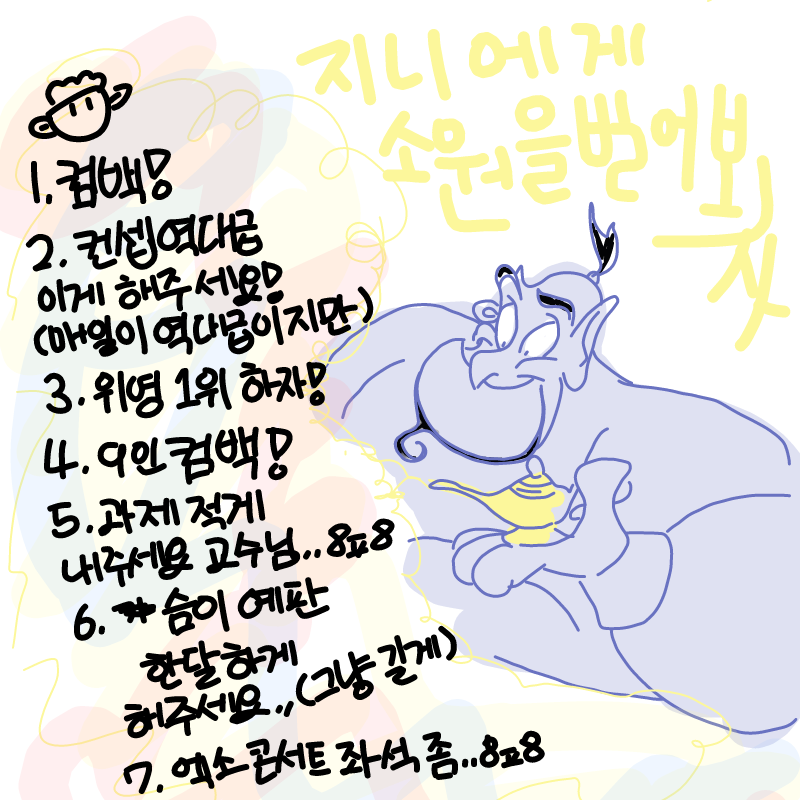 지니에게
소원을빌어보
자
1. 컴백!
2. 컨셉역대급
이게 해주세요!
(매일이 역대급이지만)
3. 위영 1위 하자!
4. 9인컴백!
5. 과제 적게
내주세요 교수님..8ㅍ8
6. 슴이 예판
한달하게
해주세요.,(그냥 길게)
7. 엑소콘서트 좌석 좀..8ㅍ8